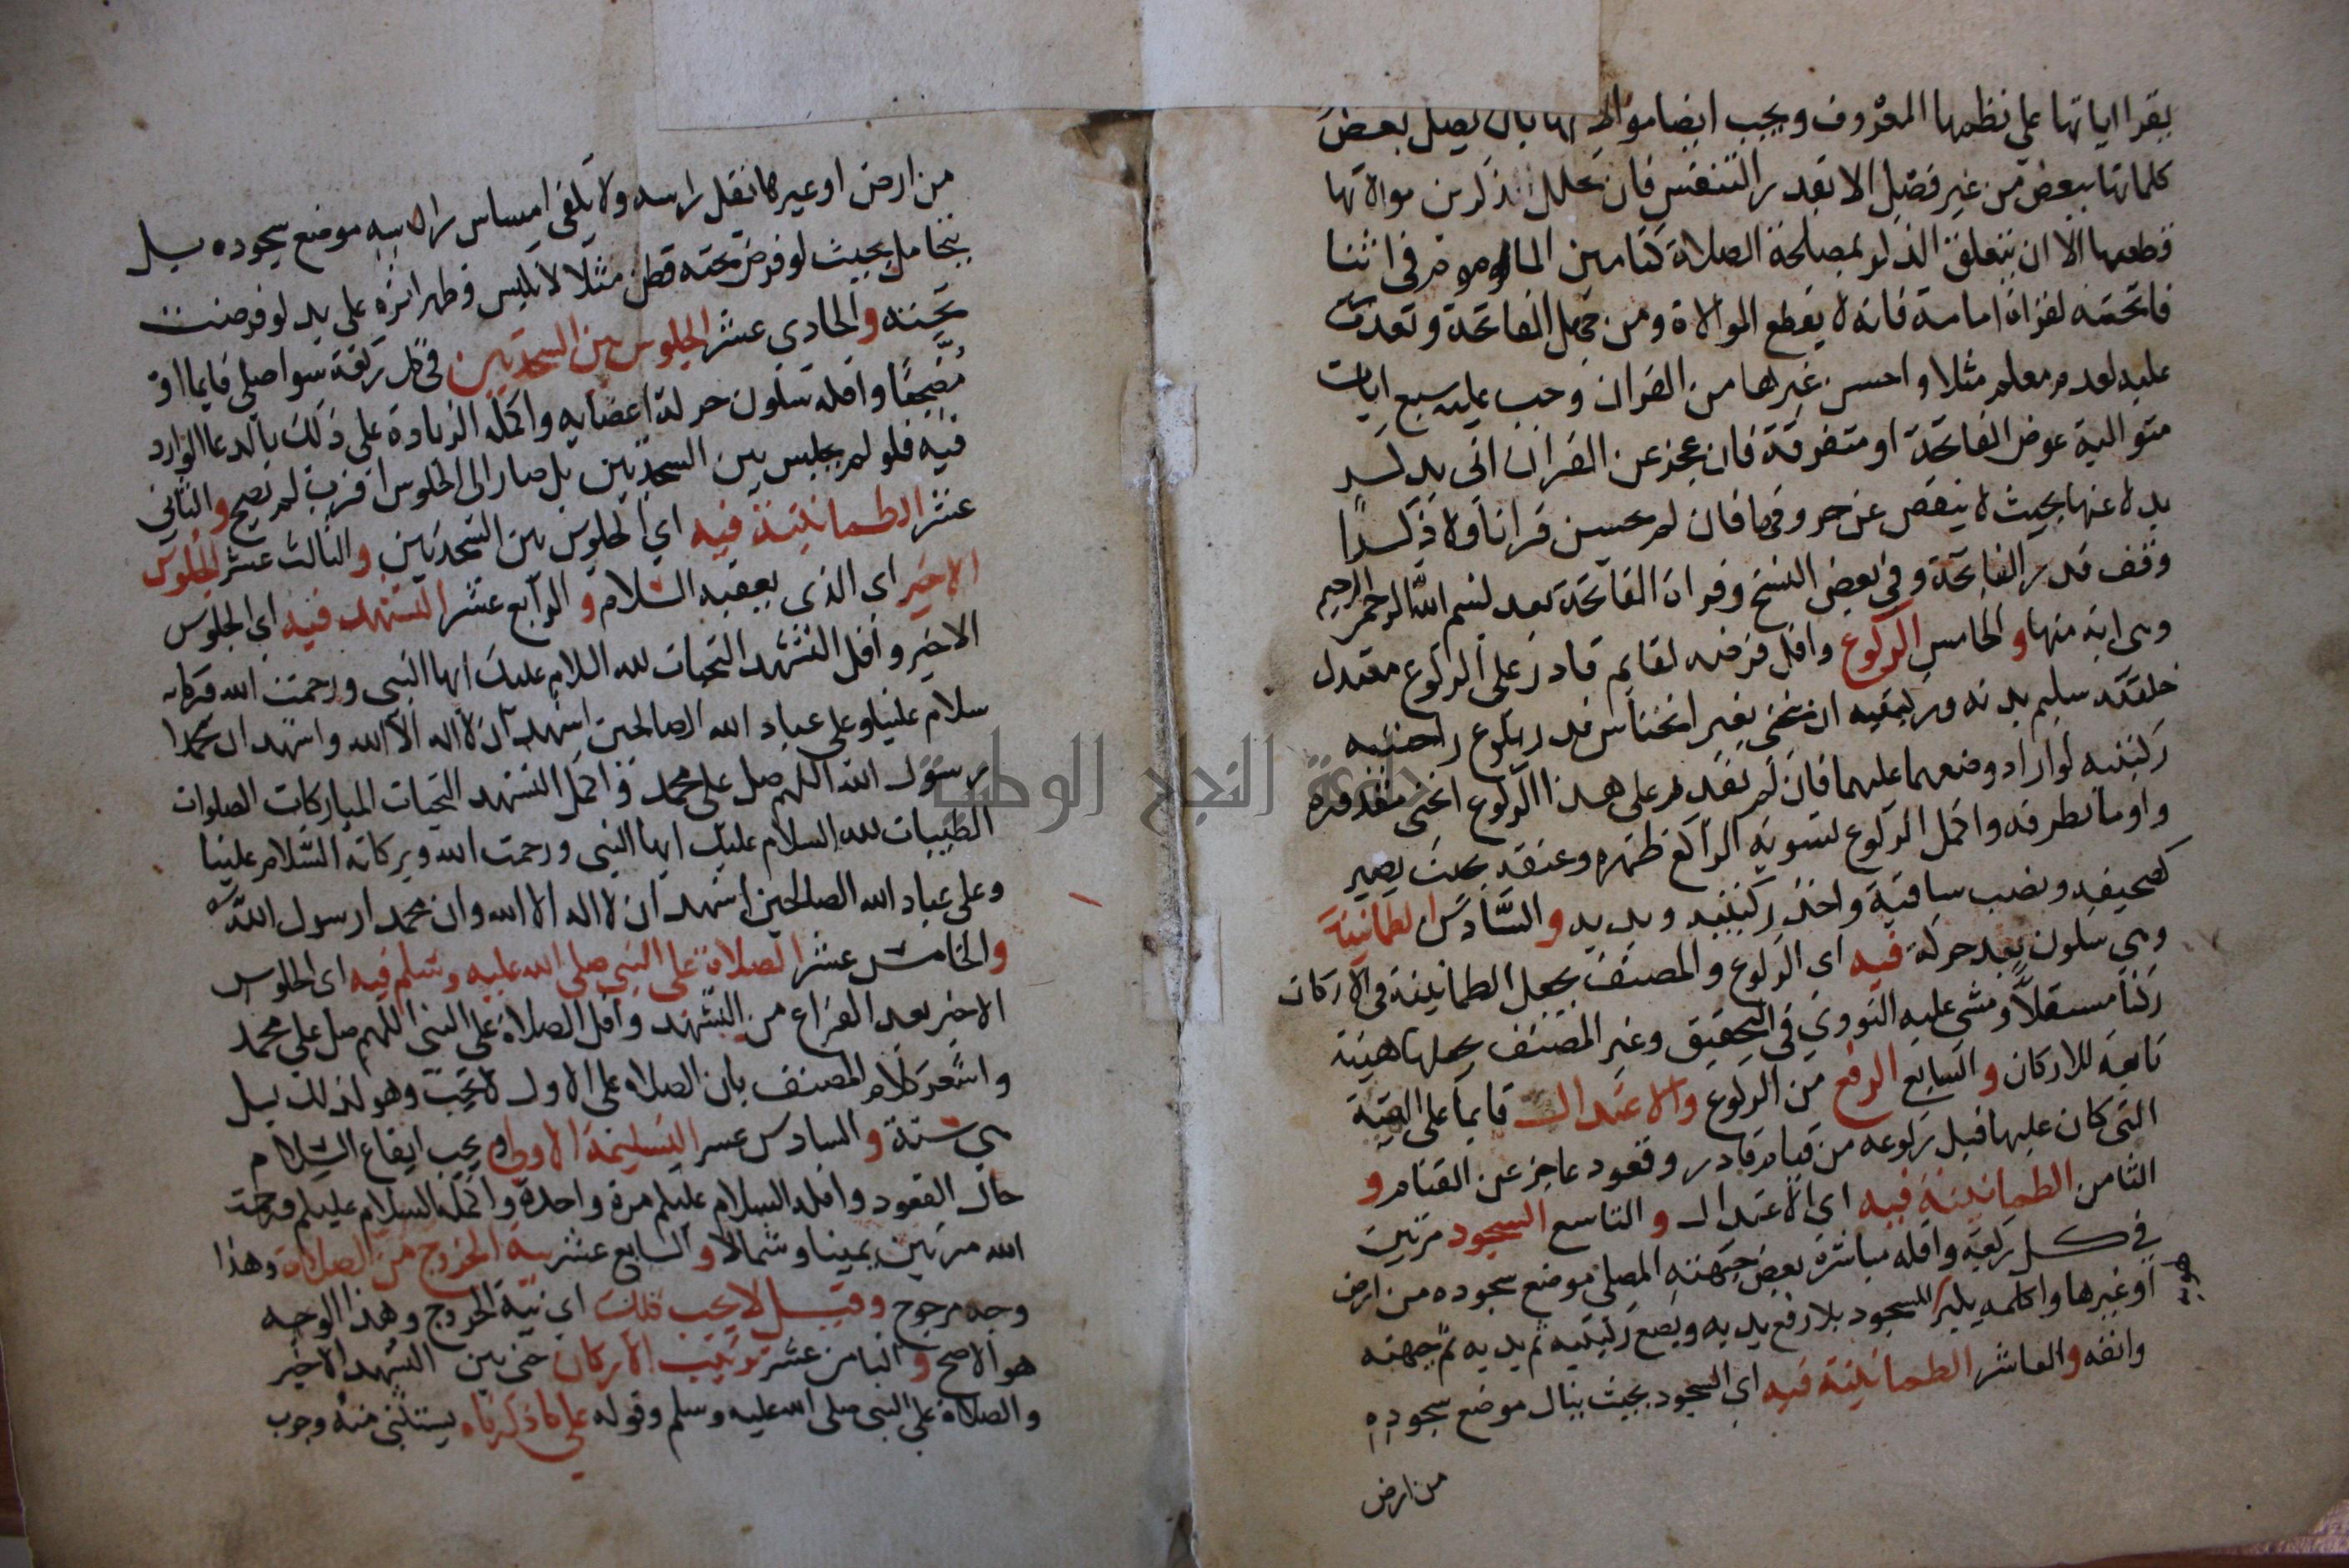 يقرا اياتها على نظمها المعروف ويجب ايضا موالاتها بان يصل بعض
كلماتها ببعض من غير فصل الا بقدر التنفس فان تخلل الذكر بين موالاتها
قطعها الا ان يتعلق الذكر بمصلحة الصلاة كتامين الماموم في اثنا
فاتحته لقراة امامه فانه لا يقطع الموالاة ومن جهل الفاتحة وتعذرت
عليه لعدم معلم مثلا واحسن غيرها من القران وجب عليه سبع ايات
متوالية عوض الفاتحة او متفرقة فان عجز عن القران اتى بذكر
بدلا عنها بحيث لا ينقص عن حروفها فان لم يحسن قرانا ولا ذكرا
وقف قدر الفاتحة وفي بعض النسخ وقراة الفاتحة بعد بسم الله الرحمن الرحيم
وهي اية منها والخامس الركوع واقل فرضه لقايم قادر على الركوع معتدل
خلقته سليم يديه وركبتيه ان ينحني بغير انخناس قدر بلوغ راحتيه
ركبتيه لو اراد وضعهما عليهما فان لم يقدر على هذا الركوع انحنى مقدوره
واوما بطرفه واكمل الركوع تسوية الراكع ظهره وعنقه بحيث يصير
كصحيفة ونصب ساقيه واخذ ركبتيه بيديه والسادس الطمانينة
وهي سكون بعد حركة فيه اى الركوع والمصنف يجعل الطمانينة في الاركان
ركنا مستقلا ومشى عليه النووي في التحقيق وغير المصنف يجعلها هيئة
تابعة للاركان والسابع الرفع من الركوع والاعتدال قايما على الهيئة
التي كان عليها قبل ركوعه من قيام قادر وقعود عاجز عن القيام و
الثامن الطمانينة فيه اى الاعتدال والتاسع السجود مرتين
في كل ركعة واقله مباشرة بعض جبهته المصلي موضع سجوده من ارض
او غيرها واكمله يكبر للسجود بلا رفع يديه ويضع ركبتيه ثم يديه ثم جبهته
وانفه والعاشر الطمانينة فيه اى السجود بحيث ينال موضع سجوده
من ارض
من ارض او غيرها ثقل راسه ولا يكفي امساس راسه موضع سجوده بل
يتحامل بحيث لو فرض تحته قطن مثلا لانكبس وظهر اثره على يد لو فرضت
تحته والحادي عشر الجلوس بين السجدتين في كل ركعة سوا صلى قايما او
مضجعا واقله سكون حركة اعضايه واكمله الزيادة على ذلك بالدعا الوارد
فيه فلو لم يجلس بين السجدتين بل صار الى الجلوس اقرب لم يصح والثاني
عشر الطمانينة فيه اى الجلوس بين السجدتين والثالث عشر الجلوس
الاخير اى الذي يعقبه السلام والرابع عشر التشهد فيه اى الجلوس
الاخير واقل التشهد التحيات لله السلام عليك ايها النبي ورحمت الله وبركاته
سلام علينا وعلى عباد الله الصالحين اشهد ان لا اله الا الله واشهد ان محمدا
رسول الله اللهم صل على محمد واكمل التشهد التحيات المباركات الصلوات
الطيبات لله السلام عليك ايها النبي ورحمت الله وبركاته السلام علينا
وعلى عباد الله الصالحين اشهد ان لا اله الا الله وان محمدا رسول الله
والخامس عشر الصلاة على النبي صلى الله عليه وسلم فيه اى الجلوس
الاخير بعد الفراغ من التشهد واقل الصلاة على النبي اللهم صل على محمد
واشعر كلام المصنف بان الصلاه على الاول لا تجب وهو لذلك بل
هي سنة والسادس عشر التسليمة الاولى ويجب ايقاع السلام
حال القعود واقله السلام عليكم مرة واحدة واكمله السلام عليكم ورحمت
الله مرتين يمينا وشمالا والسابع عشر نية الخروج من الصلاة وهذا
وجه مرجوح وقيل لا يجب ذلك اى نية الخروج وهذا الوجه
هو الاصح والثامن عشر ترتيب الاركان حتى بين التشهد الاخير
والصلاة على النبي صلى الله عليه وسلم وقوله على ما ذكرناه يستثنى منه وجوب
جامعة النجاح الوطنية